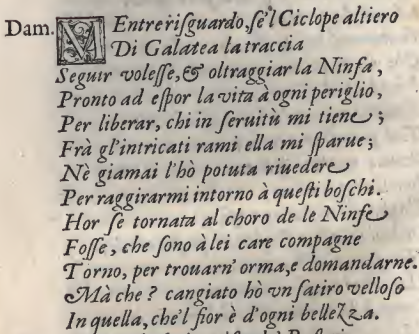 Dam. MEntre riſguardo, ſe'l Ciclope altiero
Di Galatea la traccia
Seguir voleſſe, & oltraggiar la Ninfa,
Pronto ad eſpor la vita à ogni periglio,
Per liberar, chi in ſeruitù mi tiene;
Frà gl'intricati rami ella mi ſparue;
Nè giamai l'hò potuta riuedere
Per raggirarmi intorno à queſti boſchi.
Hor ſe tornata al choro de le Ninfe
Foſſe, che ſono à lei care compagne
Torno, per trouarn' orma, e domandarne.
Mà che? cangiato hò vn ſatiro velloſo
In quella, che'l fior è d'ogni bellezza.